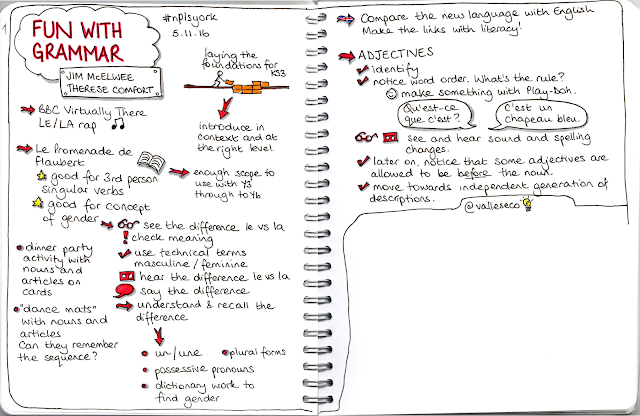 FUN WITH
GRAMMAR
JIM McELWEE
THERESE COMFORT
#nplsyork
5.11.16
laying the
foundations for
KS3
introduce in
context and at
the right level.
BBC Virtually There
LE/LA rap
Le Promenade de
Flaubert
good for 3rd person
singular verbs
good for concept
of gender
enough scope to
use with Y3
through to Y6
see the difference le vs la
check meaning
use technical terms
masculine/feminine
hear the difference le vs la
say the difference
understand & recall the
difference
dinner party
activity with
nouns and
articles on
cards
"dance mats"
with nouns and
articles
Can they remember
the sequence?
un/une
plural forms
possessive pronouns
dictionary work to
find gender
Compare the new language with English
Make the links with literacy!
ADJECTIVES
identify
notice word order. What's the rule?
make something with Play-Doh.
Qu'est-ce
que c'est?
C'est un
chapeau bleu.
see and hear sound and spelling
changes.
later on, notice that some adjectives are
allowed to be before the noun.
move towards independent generation of
descriptions.
@valleseco